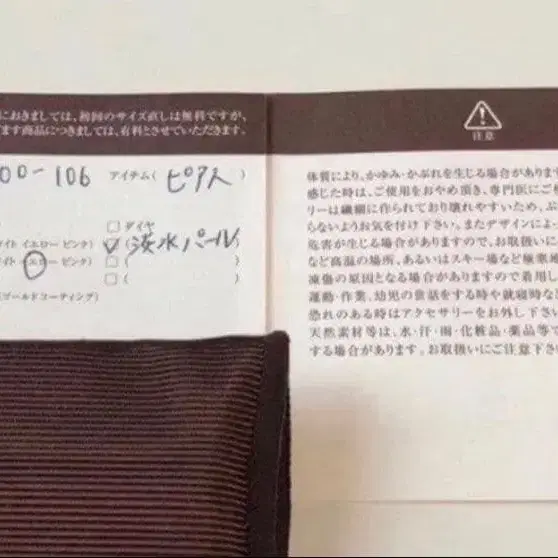 におきましては、初回のサイズ直しは無料ですが、
ます商品につきましては、有料とさせていただきます。
00-106 アイテム( ピアス )
□ダイヤ
イト イエロー ピンク) ☑( 淡水パール
イト イエロー ピンク) □( )
□( )
ゴールドコーティング)
注意
体質により、かゆみ・かぶれを生じる場合があります
感じた時は、ご使用をおやめ頂き、専門医にご
リーは繊細に作られており壊れやすいため、ぶ
らないようお気を付け下さい。またデザインによっ
危害が生じる場合がありますので、お取扱いに
など高温の場所、あるいはスキー場など極寒地
凍傷の原因となる場合がありますので着用し
運動・作業、幼児の世話をする時や就寝時な
恐れのある時はアクセサリーをお外し下さい。
天然素材等は、水・汗・雨・化粧品・薬品等
する場合があります。お取扱いにご注意下さ